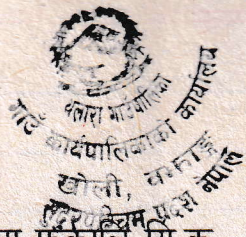 थलारा गाउँपालिका
गाउँ कार्यपालिकाको कार्यालय
खोली, बझाङ्ग
सुदूरपश्चिम प्रदेश नेपाल